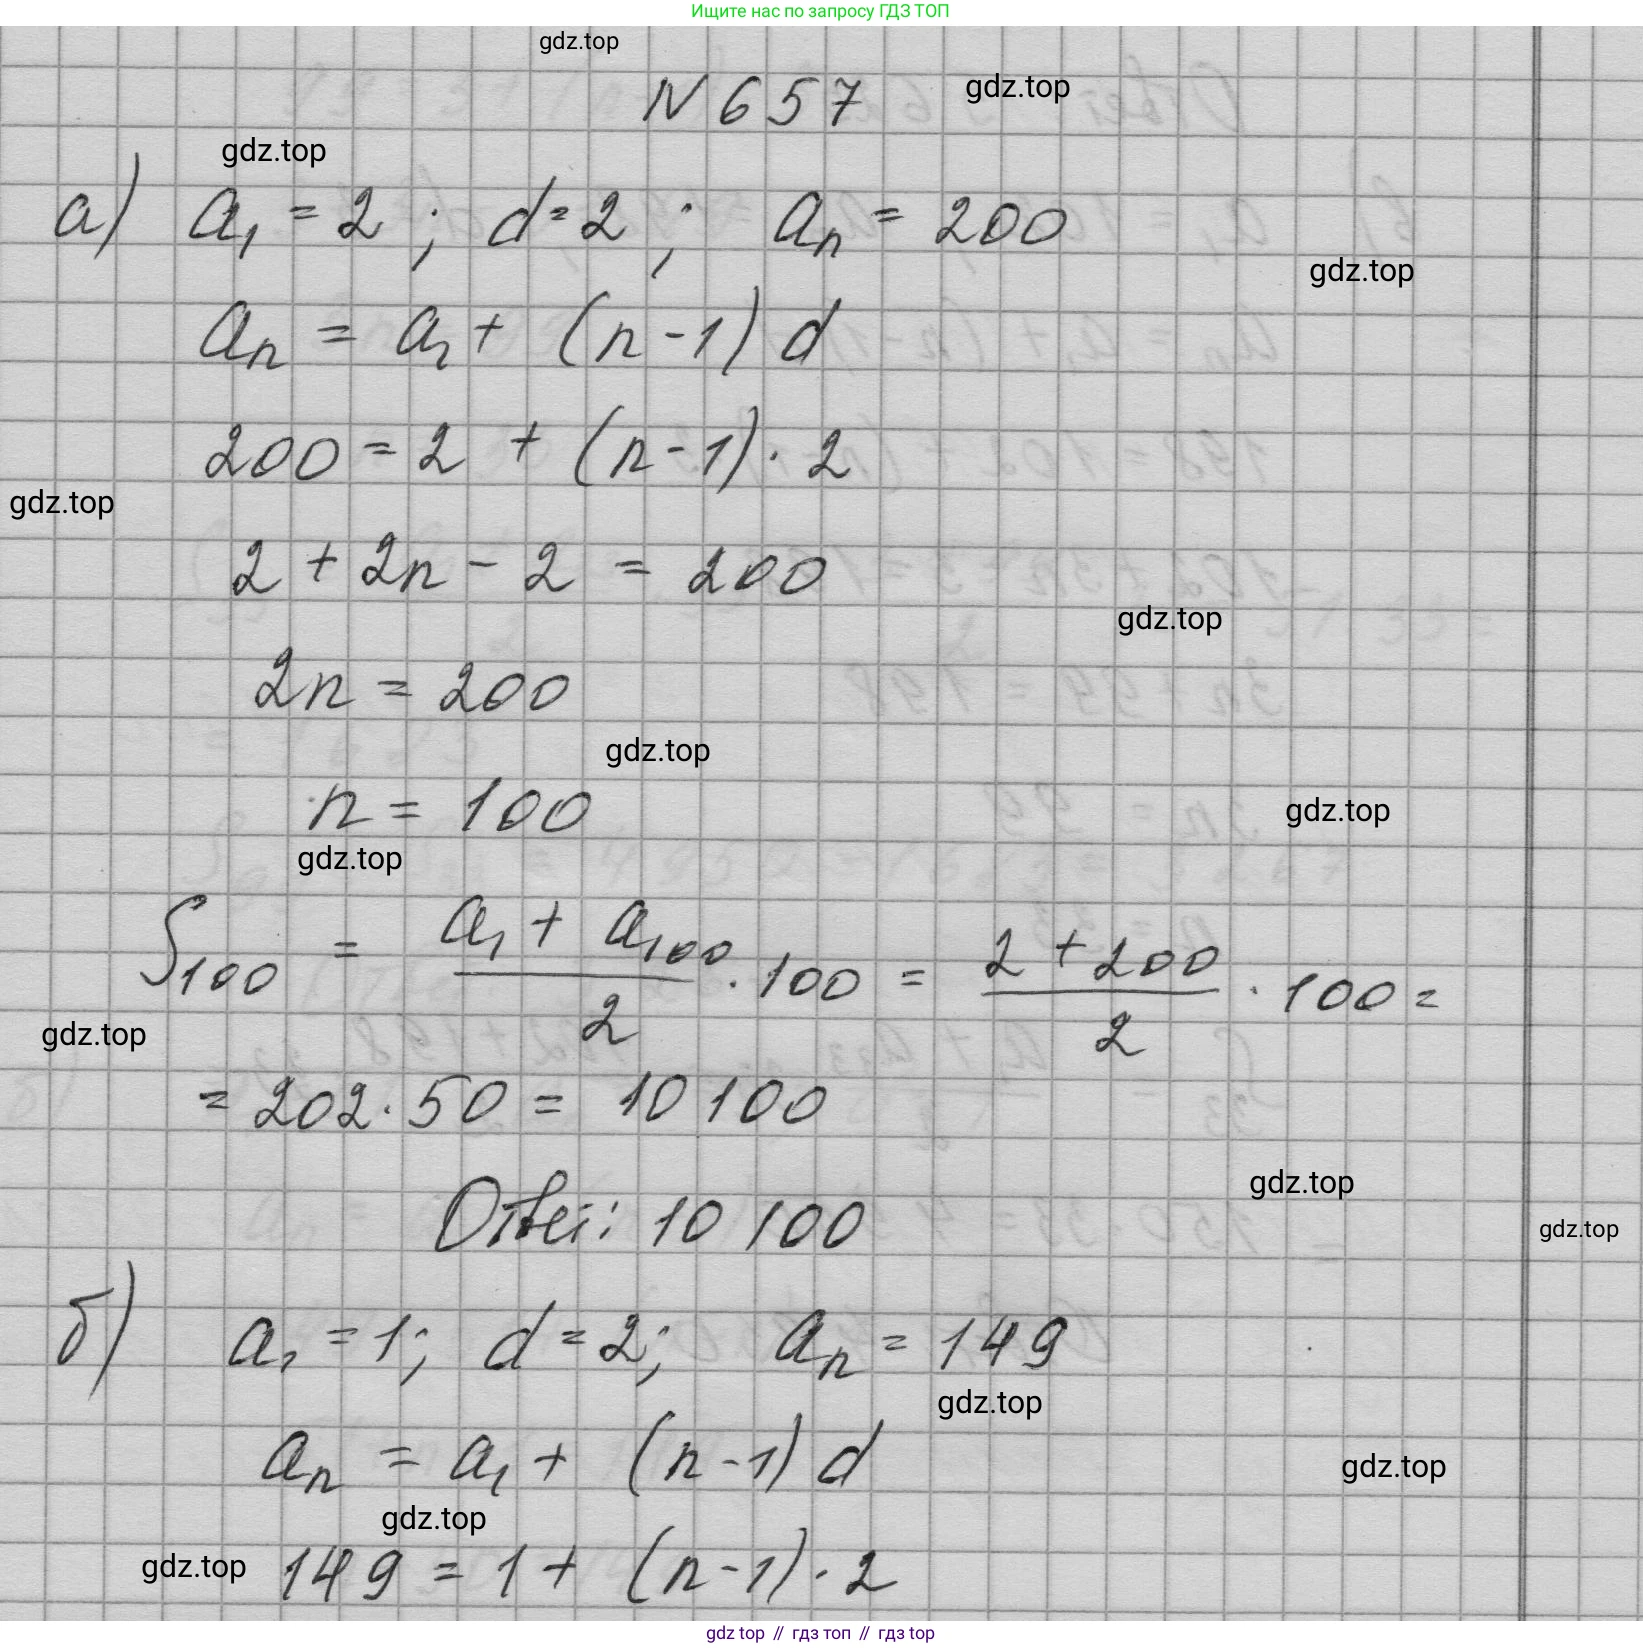 Ищите нас по запросу ГДЗ ТОП
gdz.top
N 657
gdz.top
gdz.top
а) a₁ = 2 ; d = 2 ; aₙ = 200
gdz.top
aₙ = a₁ + (n - 1) d
200 = 2 + (n - 1) · 2
gdz.top
2 + 2n - 2 = 200
gdz.top
2n = 200
gdz.top
n = 100
gdz.top
gdz.top
S₁₀₀ = (a₁ + a₁₀₀)/2 · 100 = (2 + 200)/2 · 100 =
gdz.top
= 202 · 50 = 10 100
gdz.top
Ответ: 10 100
gdz.top
б) a₁ = 1; d = 2; aₙ = 149
gdz.top
aₙ = a₁ + (n - 1) d
gdz.top
gdz.top
gdz.top
149 = 1 + (n - 1) · 2
gdz top // гдз топ // гдз top